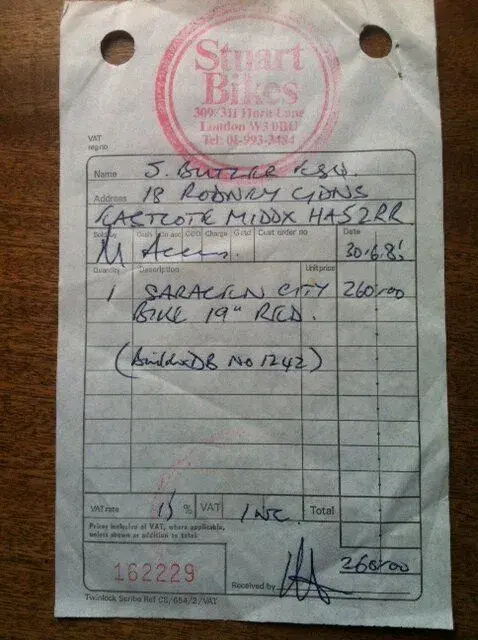 Stuart
Bikes
309/311 Horn Lane
London W3 0BU
Tel: 01-993-3484
VAT
reg no
Name J. BUTLER ESQ.
Address 18 RODNEY GDNS
EASTCOTE MIDDX HA5 2RR
Sold by Cash On acc COD Charge Cr'td Cust order no Date
M Access. 30.6.8
Quantity Description Unit price
1 SARACEN CITY 260.00
BIKE 19" RED.
DB No 1242)
VAT rate 15 % VAT INC. Total
Prices inclusive of VAT, where applicable,
unless shown as addition to total
260.00
162229
Received by
Twinlock Scribe Ref CS/654/2/VAT